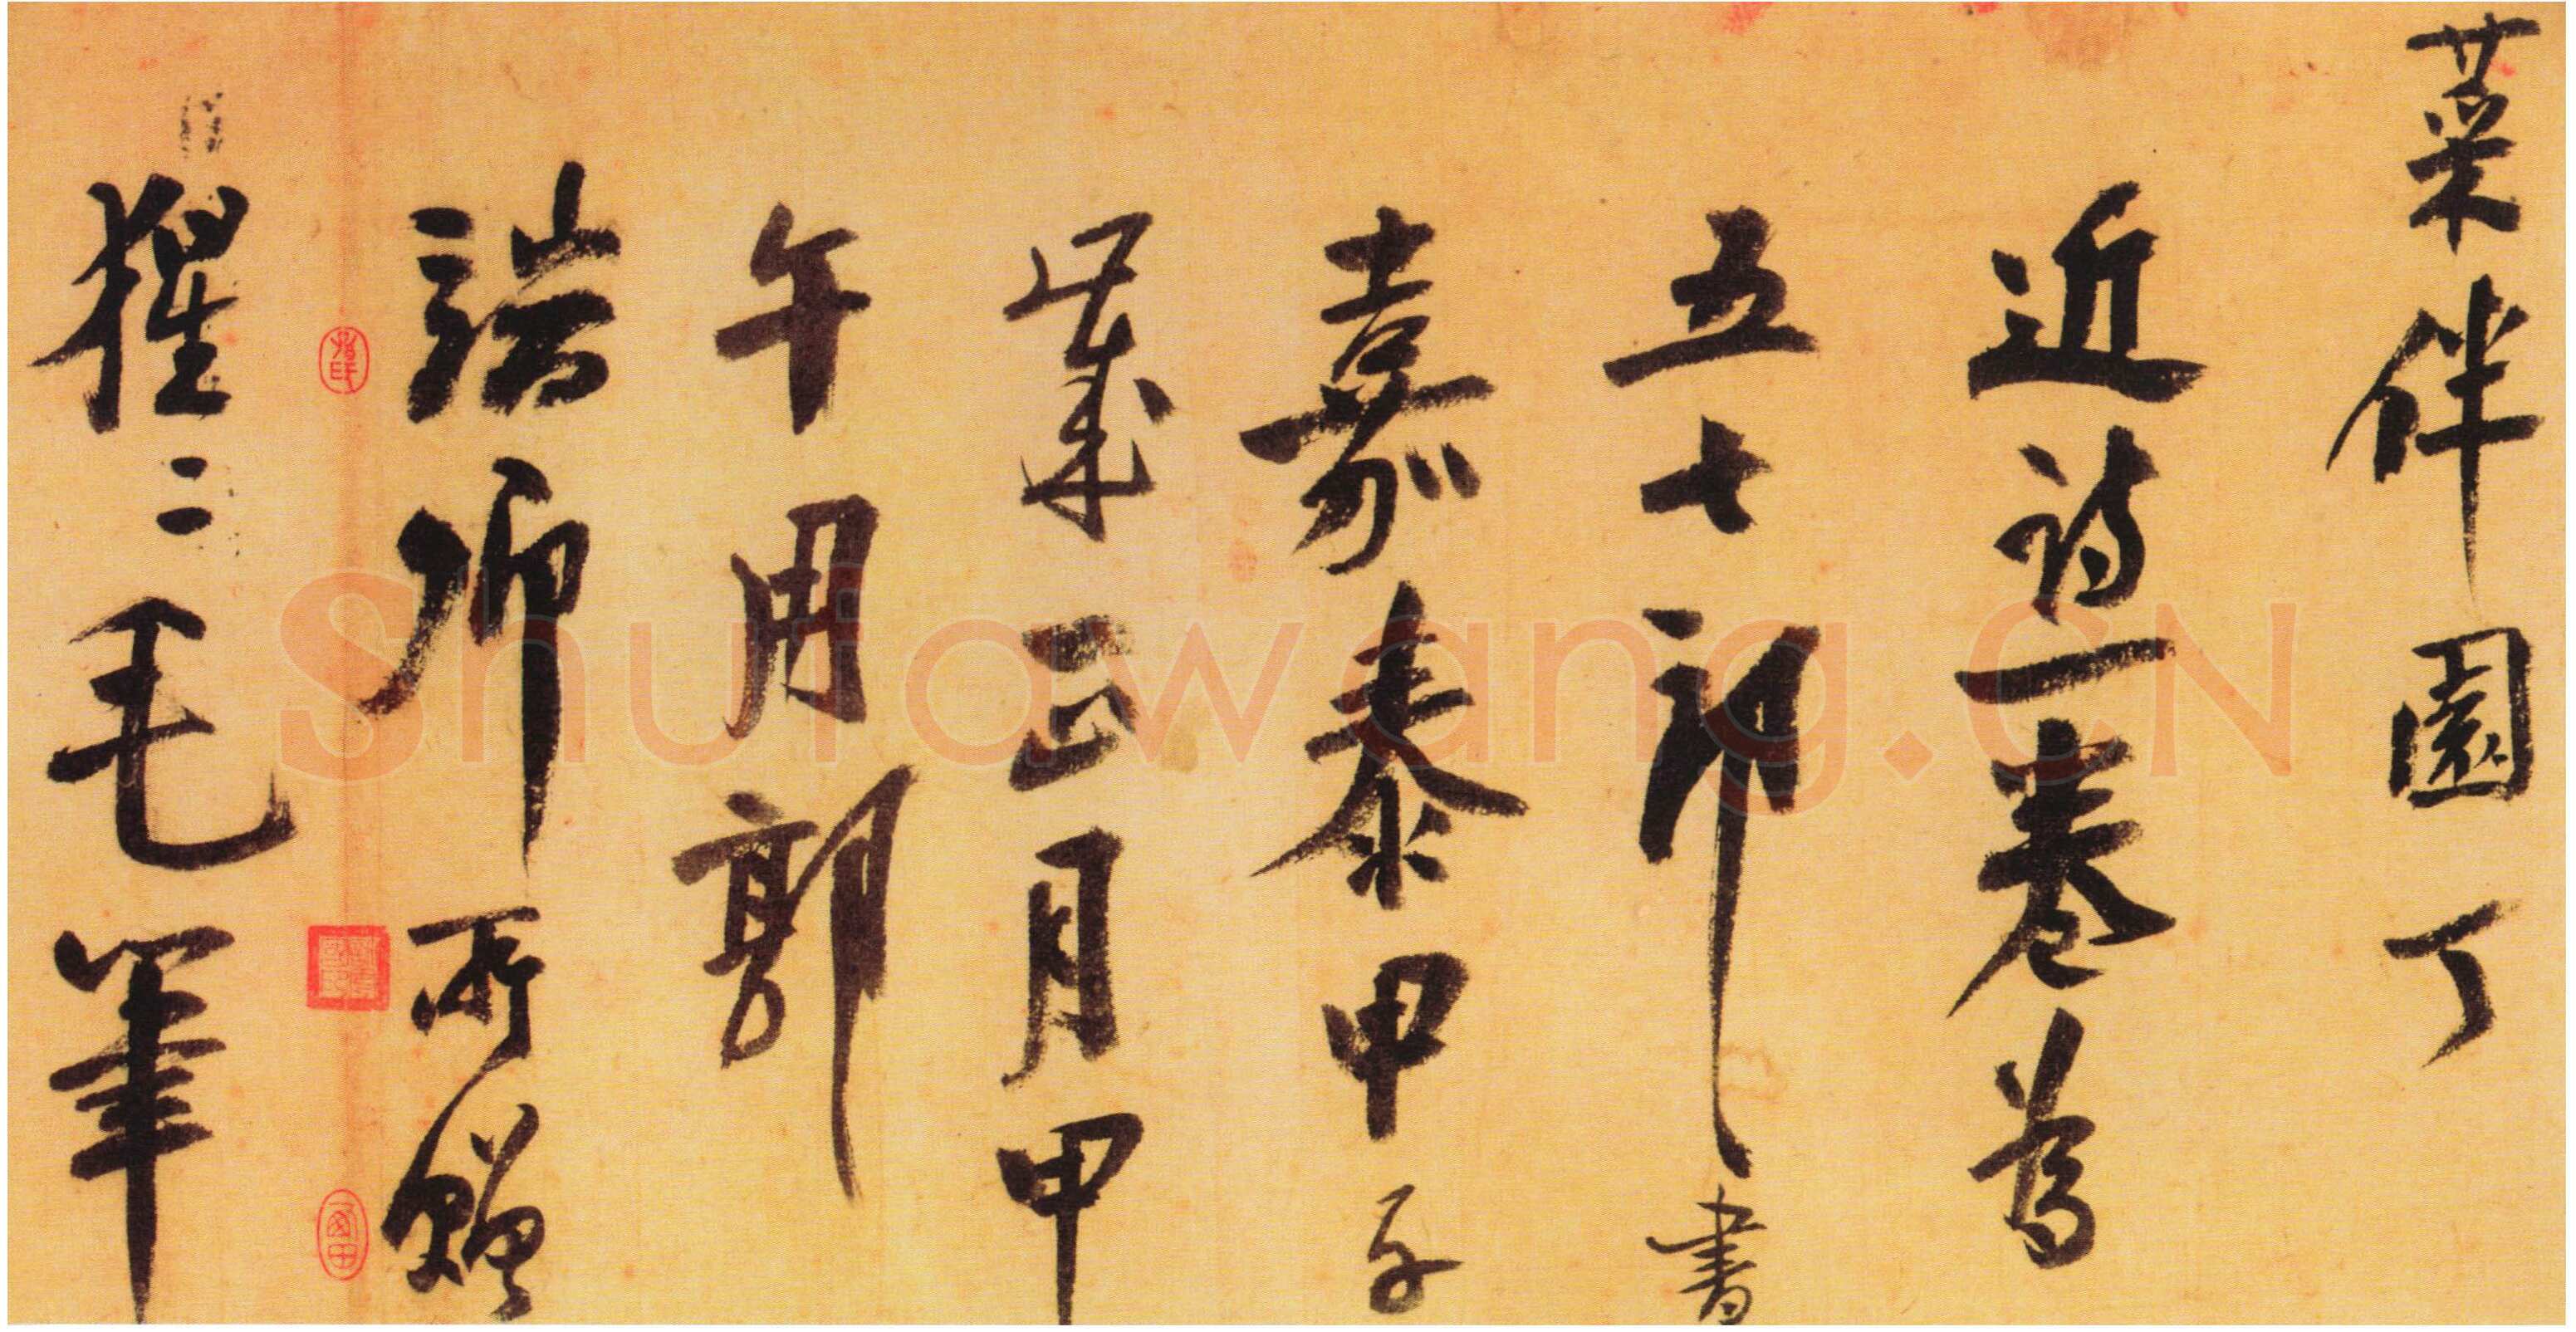 菜伴園丁
近詩一卷為
五七郎書
嘉泰甲子
歲正月甲
午用郭
端卿所贈
猩〻毛筆
Shufawang.CN